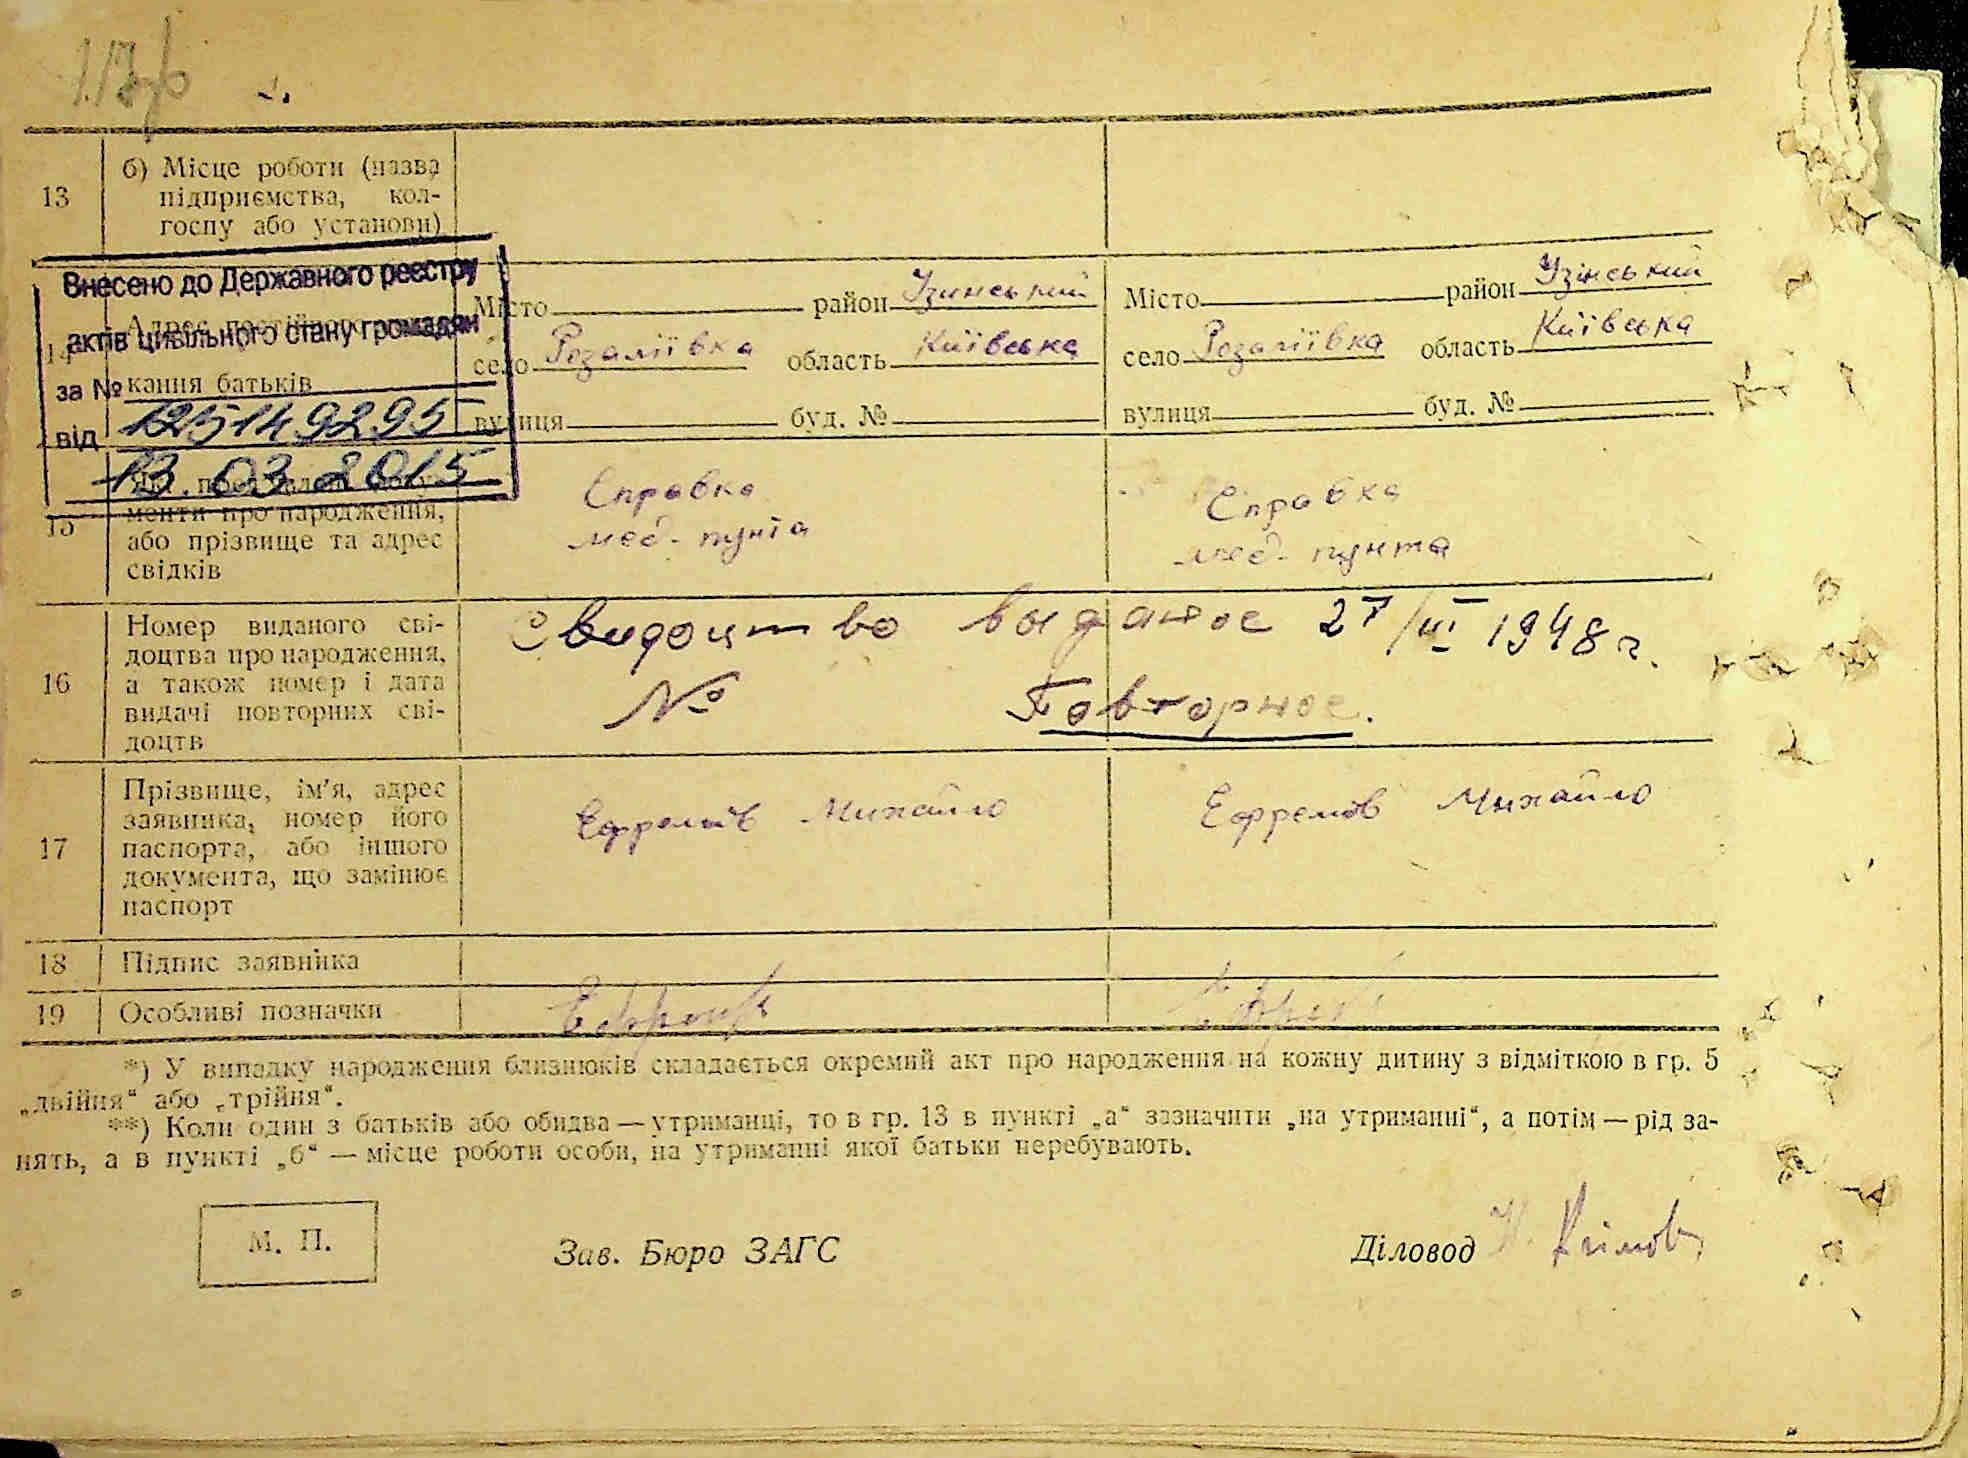 13
б) Місце роботи (назва
підприємства, кол-
госпу або установи)
Внесено до Державного реєстру
актів цивільного стану громадян
за №
125149295
від
13.03.2015
14
кання батьків
Місто район Узинський
село Розаліївка область Київська
вулиця буд. №
Місто район Узінський
село Розаліївка область Київська
вулиця буд. №
15
менти про народження,
або прізвище та адрес
свідків
Справка
мед. пункта
Справка
мед. пункта
16
Номер виданого сві-
доцтва про народження,
а також номер і дата
видачі повторних сві-
доцтв
Свидоцтво выданое 27/III 1948 г.
№ Повторное.
17
Прізвище, ім'я, адрес
заявника, номер його
паспорта, або іншого
документа, що замінює
паспорт
Ефремов Михайло
Ефремов Михайло
18 Підпис заявника
19 Особливі позначки
*) У випадку народження близнюків складається окремий акт про народження на кожну дитину з відміткою в гр. 5
„двійня“ або „трійня“.
**) Коли один з батьків або обидва — утриманці, то в гр. 13 в пункті „а“ зазначити „на утриманні“, а потім — рід за-
нять, а в пункті „б“ — місце роботи особи, на утриманні якої батьки перебувають.
М. П.
Зав. Бюро ЗАГС
Діловод